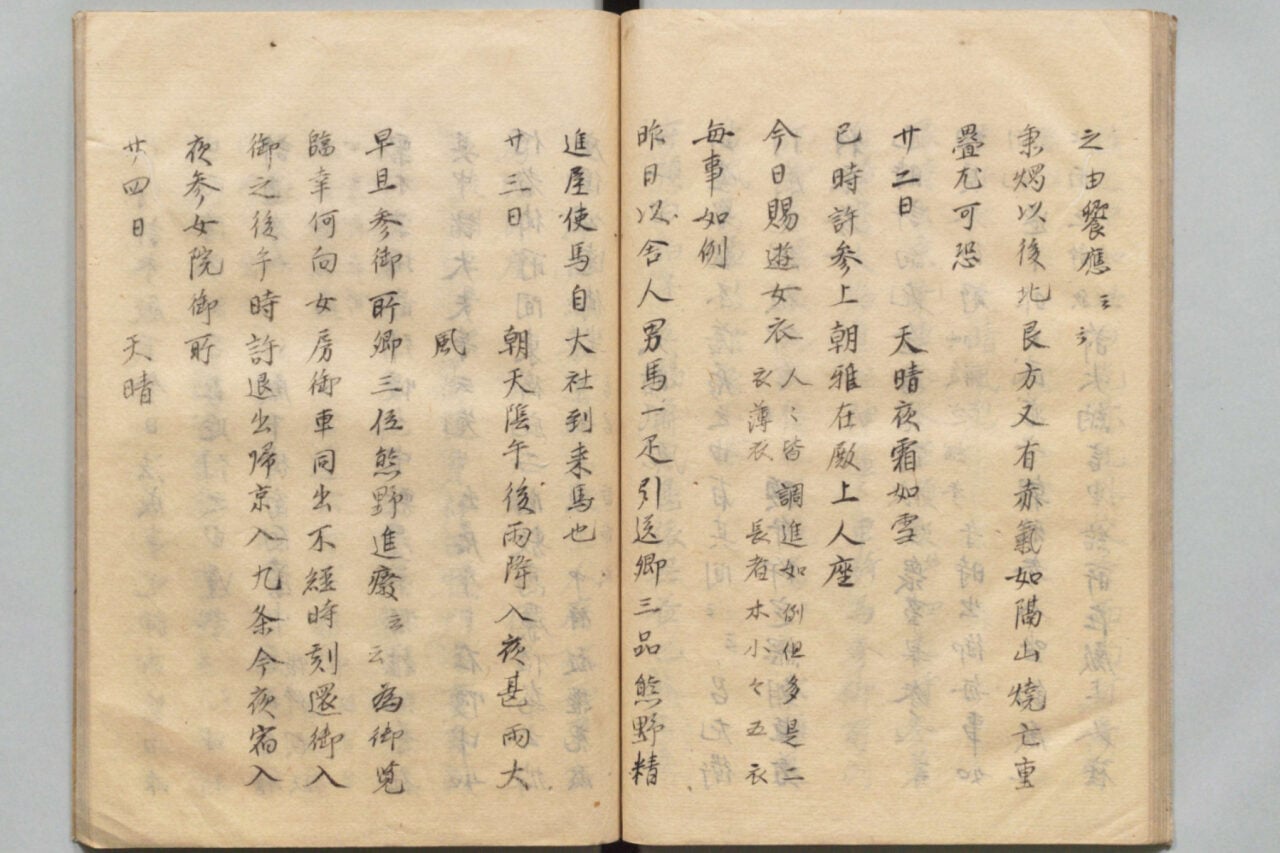 之由饗應云々
秉燭以後北艮方又有赤氣如隔山燒亡重
疊尤可恐
廿二日　天晴夜霜如雪
巳時許参上朝雅在廏上人座
今日賜遊女衣
人〻皆調進如例但多是二
衣薄衣　長者木小々五衣
每事如例
昨日以舎人男馬一疋引送卿三品熊野精
進屋使馬自大社到来馬也
廿三日　朝天陰午後雨降入夜甚雨大
風
早旦参御所卿三位熊野進發云云為御覧
臨幸何向女房御車同出不經時刻還御入
御之後午時許退出帰京入九条今夜宿入
夜参女院御所
廿四日　天晴